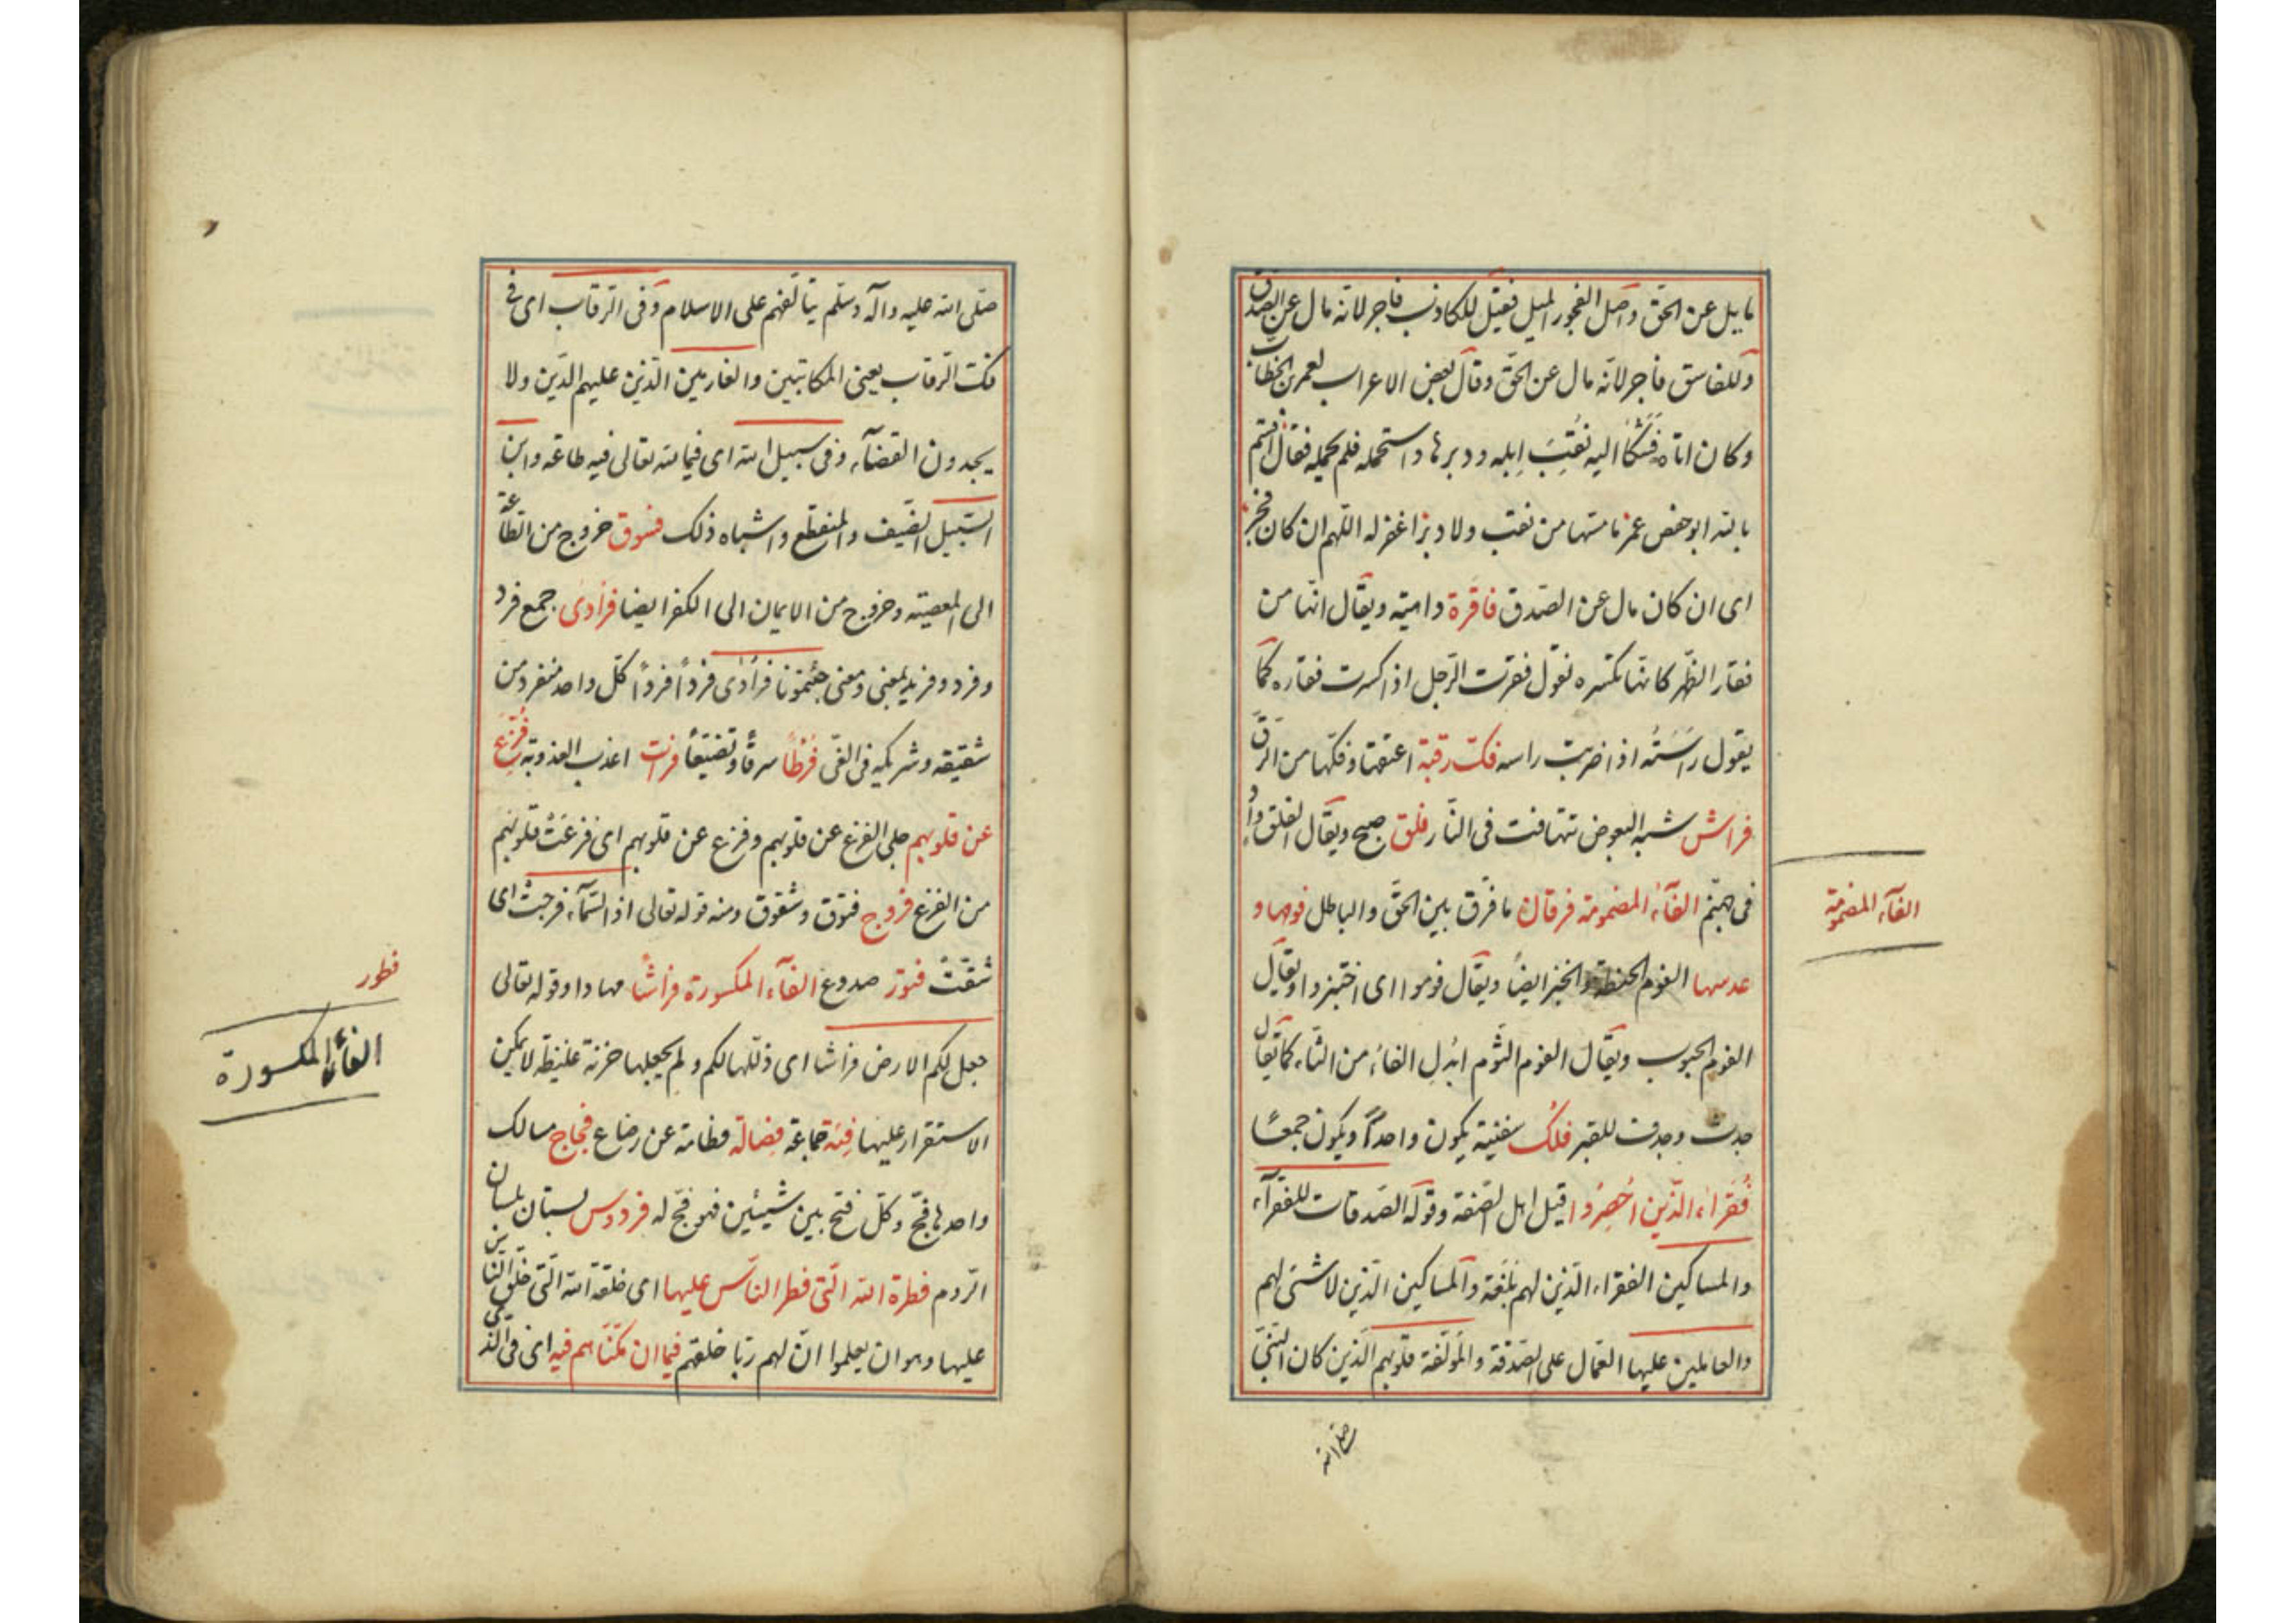 مايل عن الحق واصل الفجور الميل فقيل للكاذب فاجر لانه مال عن الصدق
وللفاسق فاجر لانه مال عن الحق وقال بعض الاعراب لعمر بن الخطاب
وكان اتاه فشكا اليه نقب ابله ودبرها واستحمله فلم يحمله فقال اقسم
بالله ابو حفص عمر ما مسها من نقب ولا دبر اغفر له اللهم ان كان فجر
اى ان كان مال عن الصدق فاقرة داهية ويقال انها من
فقار الظهر كانها تكسره تقول فقرت الرجل اذا كسرت فقاره كما
يقول راسته اذا ضربت راسه فك رقبة اعتقها وفكها من الرق
فراش شبه البعوض تتهافت فى النار فلق صبح ويقال الفلق واد
فى جهنم الفآء المضمومة فرقان ما فرق بين الحق والباطل فومها و
عدسها الفوم الحنطة والخبز ايضا ويقال فوموا اى اختبزوا ويقال
الفوم الحبوب ويقال الفوم الثوم ابدل الفاء من الثاء كما يقال
جدث وجدف للقبر فلك سفينة يكون واحدا ويكون جمعا
فقراء الذين احصروا قيل اهل الصفة وقوله الصدقات للفقرآء
والمساكين الفقراء الذين لهم بلغة والمساكين الذين لا شئ لهم
والعاملين عليها العمال على الصدقة والمؤلفة قلوبهم الذين كان النبى
صلى الله
الفآء المضمومة
صلى الله عليه وآله وسلم يتالفهم على الاسلام وفى الرقاب اى فى
فك الرقاب يعنى المكاتبين والغارمين الذين عليهم الدين ولا
يجدون القضآء وفى سبيل الله اى فيما لله تعالى فيه طاعة وابن
السبيل الضيف والمنقطع واشباه ذلك فسوق خروج من الطاعة
الى المعصية وخروج من الايمان الى الكفر ايضا فرادى جمع فرد
وفرد وفريد بمعنى ومعنى جئتمونا فرادى فردا فردا كل واحد منفرد من
شقيقه وشريكه فى الغى فرطا سرفا وتضييعا فرات اعذب العذوبة فزع
عن قلوبهم جلى الفزع عن قلوبهم وفزع عن قلوبهم اى فزعت قلوبهم
من الفزع فروج فتوق وشقوق ومنه قوله تعالى اذا السمآء فرجت اى
شقت فتور صدوع الفآء المكسورة فراشا مهادا وقوله تعالى
جعل لكم الارض فراشا اى ذللها لكم ولم يجعلها حزنة غليظة لا يمكن
الاستقرار عليها فئة جماعة فصالة فطامة عن رضاع فجاج مسالك
واحدها فج وكل فتح بين شيئين فهو فج له فردوس بستان بلسان
الروم فطرة الله التى فطر الناس عليها اى خلقة الله التى خلق الناس
عليها وهو ان يعلموا ان لهم ربا خلقهم فيما ان مكناهم فيه اى فى الذى
فطور
الفاء المكسورة